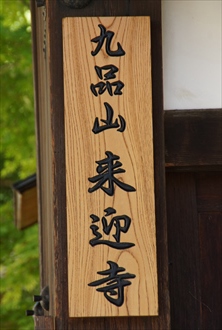 九品山来迎寺